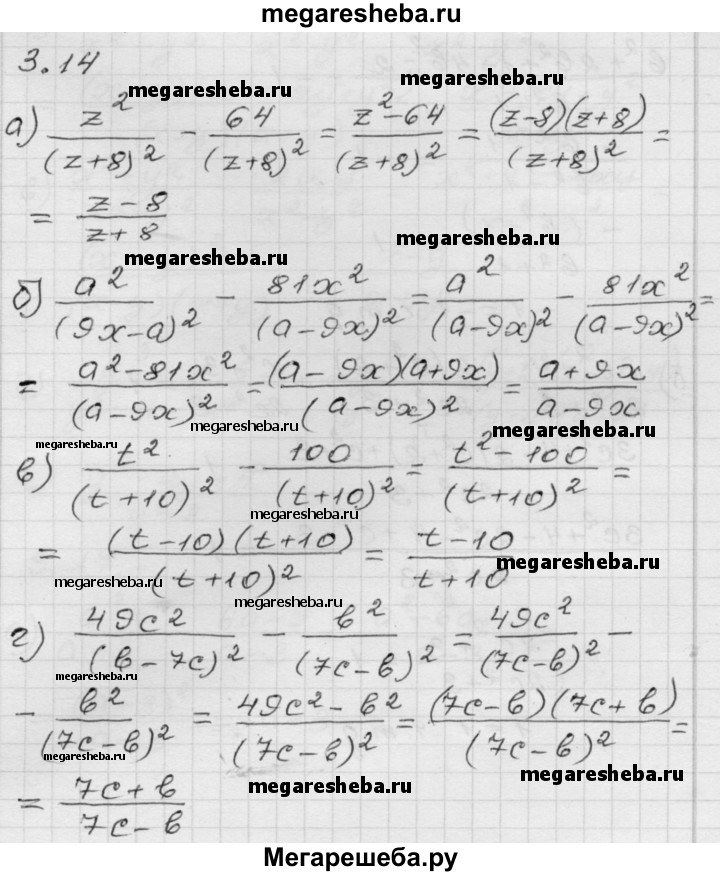 megaresheba.ru
3.14
megaresheba.ru megaresheba.ru
а) z²/(z+8)² - 64/(z+8)² = z²-64/(z+8)² = (z-8)(z+8)/(z+8)² =
= z-8/z+8
megaresheba.ru megaresheba.ru
б) a²/(9x-a)² - 81x²/(a-9x)² = a²/(a-9x)² - 81x²/(a-9x)² =
= a²-81x²/(a-9x)² = (a-9x)(a+9x)/(a-9x)² = a+9x/a-9x
megaresheba.ru megaresheba.ru
megaresheba.ru
в) t²/(t+10)² - 100/(t+10)² = t²-100/(t+10)² =
megaresheba.ru megaresheba.ru
= (t-10)(t+10)/(t+10)² = t-10/t+10
megaresheba.ru megaresheba.ru
megaresheba.ru
г) 49c²/(b-7c)² - b²/(7c-b)² = 49c²/(7c-b)² -
megaresheba.ru megaresheba.ru
- b²/(7c-b)² = 49c²-b²/(7c-b)² = (7c-b)(7c+b)/(7c-b)² =
megaresheba.ru megaresheba.ru
megaresheba.ru
= 7c+b/7c-b
Мегарешеба.ру